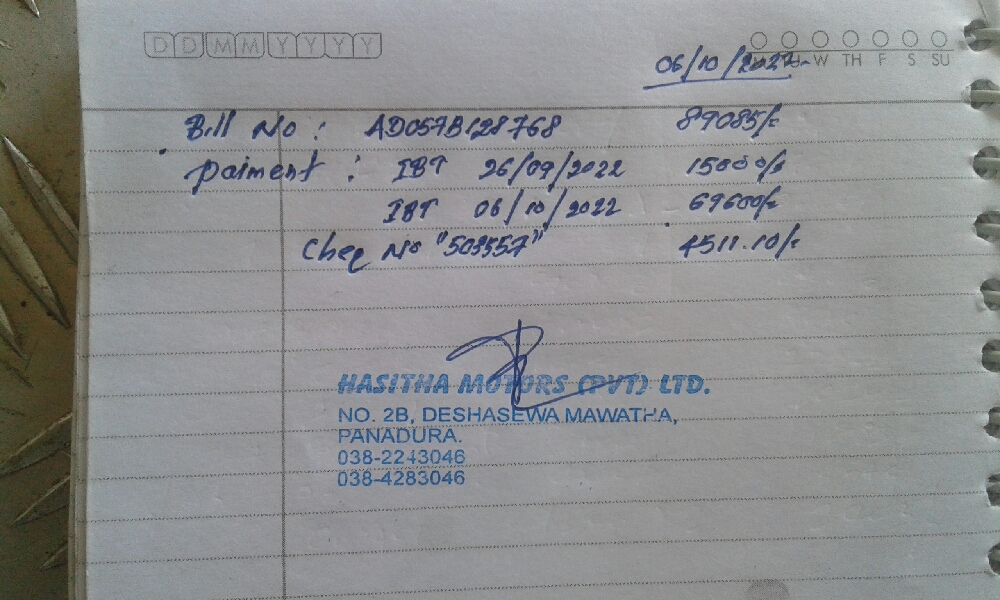 DDMMYYYY
M TU W TH F S SU
06/10/2022
Bill No : AD057B128768 89085/=
paiment : IBT 26/09/2022 15000/=
IBT 06/10/2022 69600/=
Cheq No "503557" 4511.10/=
HASITHA MOTORS (PVT) LTD.
NO. 2B, DESHASEWA MAWATHA,
PANADURA.
038-2243046
038-4283046